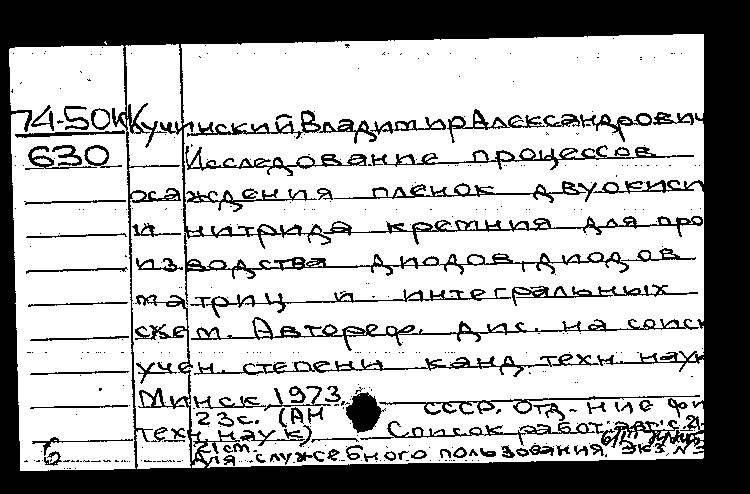 74-50к Кучинский, Владимир Александрович
630 Исследование процессов
осаждения пленок двуокиси
и нитрида кремния для про
изводства диодов, диодов
матриц и интегральных
схем. Автореф. дис. на соиск
учен. степени канд. техн. наук
Минск, 1973.
23 с. (АН СССР. Отд-ние фи
техн. наук) Список работ авт: с. 21-
21 ст.
Для служебного пользования. Экз №
б